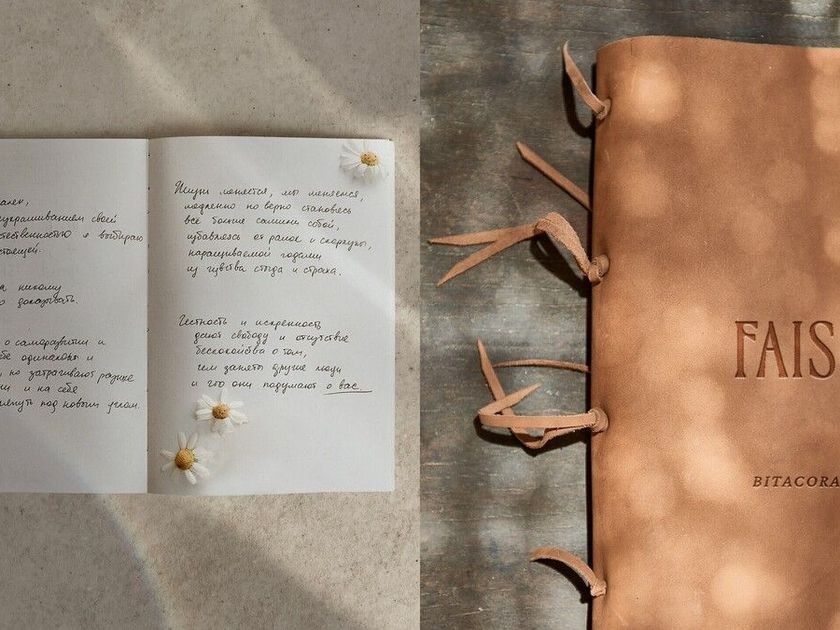 украшиванием своей
естественностью я выбираю
никому
доказывать.
о саморазвитии и
одинаковы и
но затрагивают разные
и на себе
под новым углом.
Жизнь меняется, мы меняемся,
медленно но верно становясь
всё больше самими собой,
избавляясь от рамок и скорлупы,
наращиваемой годами
из чувства стыда и страха.
Честность и искренность
дают свободу и отсутствие
беспокойства о том,
чем заняты другие люди
и что они подумают о вас.
FAIS
BITACORA